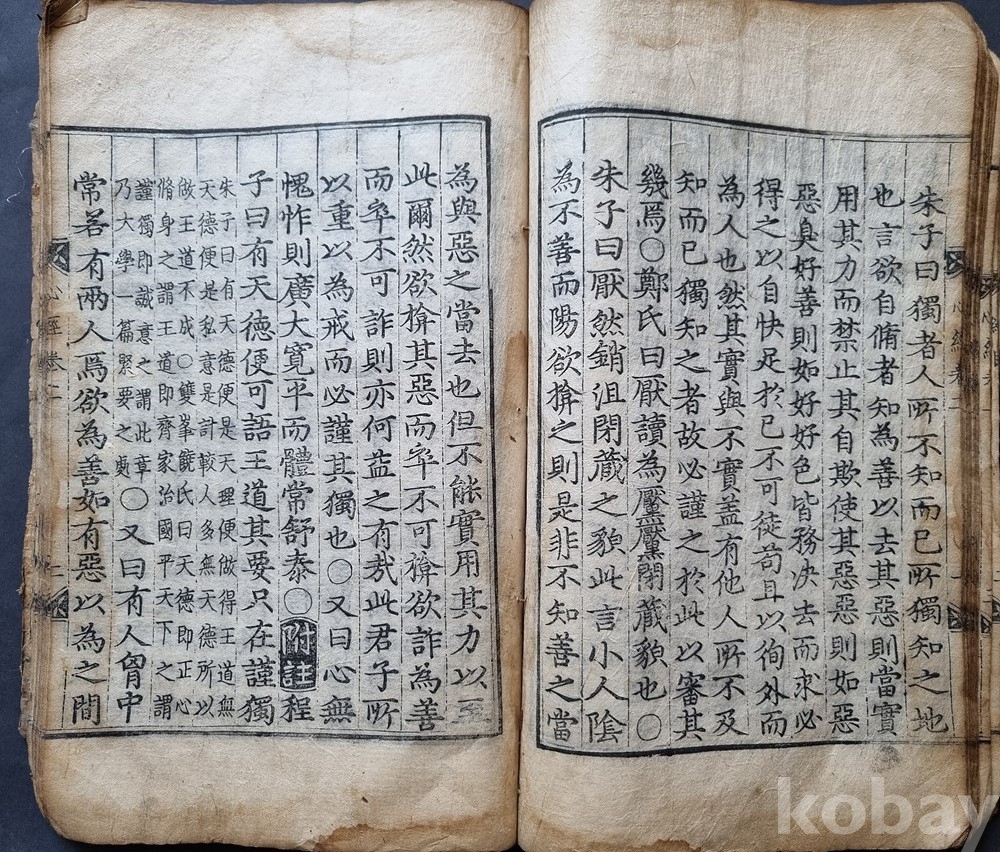 朱子曰獨者人所不知而已所獨知之地
也言欲自脩者知為善以去其惡則當實
用其力而禁止其自欺使其惡惡則如惡
惡臭好善則如好好色皆務决去而求必
得之以自快足於已不可徒苟且以徇外而
為人也然其實與不實盖有他人所不及
知而已獨知之者故必謹之於此以審其
幾焉○鄭氏曰厭讀為黶黶閉藏貌也○
朱子曰厭然銷沮閉藏之貌此言小人陰
為不善而陽欲揜之則是非不知善之當
為與惡之當去也但不能實用其力以至
此爾然欲揜其惡而卒不可揜欲詐為善
而卒不可詐則亦何益之有哉此君子所
以重以為戒而必謹其獨也○又曰心無
愧怍則廣大寬平而體常舒泰○附註程
子曰有天德便可語王道其要只在謹獨
朱子曰有天德便是天理便做得王道無
天德便是私意是計較人多無天德所以
做王道不成○雙峯饒氏曰天德即正心
脩身之謂王道即齊家治國平天下之謂
謹獨即誠意之謂此章
乃大學一篇緊要之處
○又曰有人胷中
常若有兩人焉欲為善如有惡以為之間
心經卷
kobay